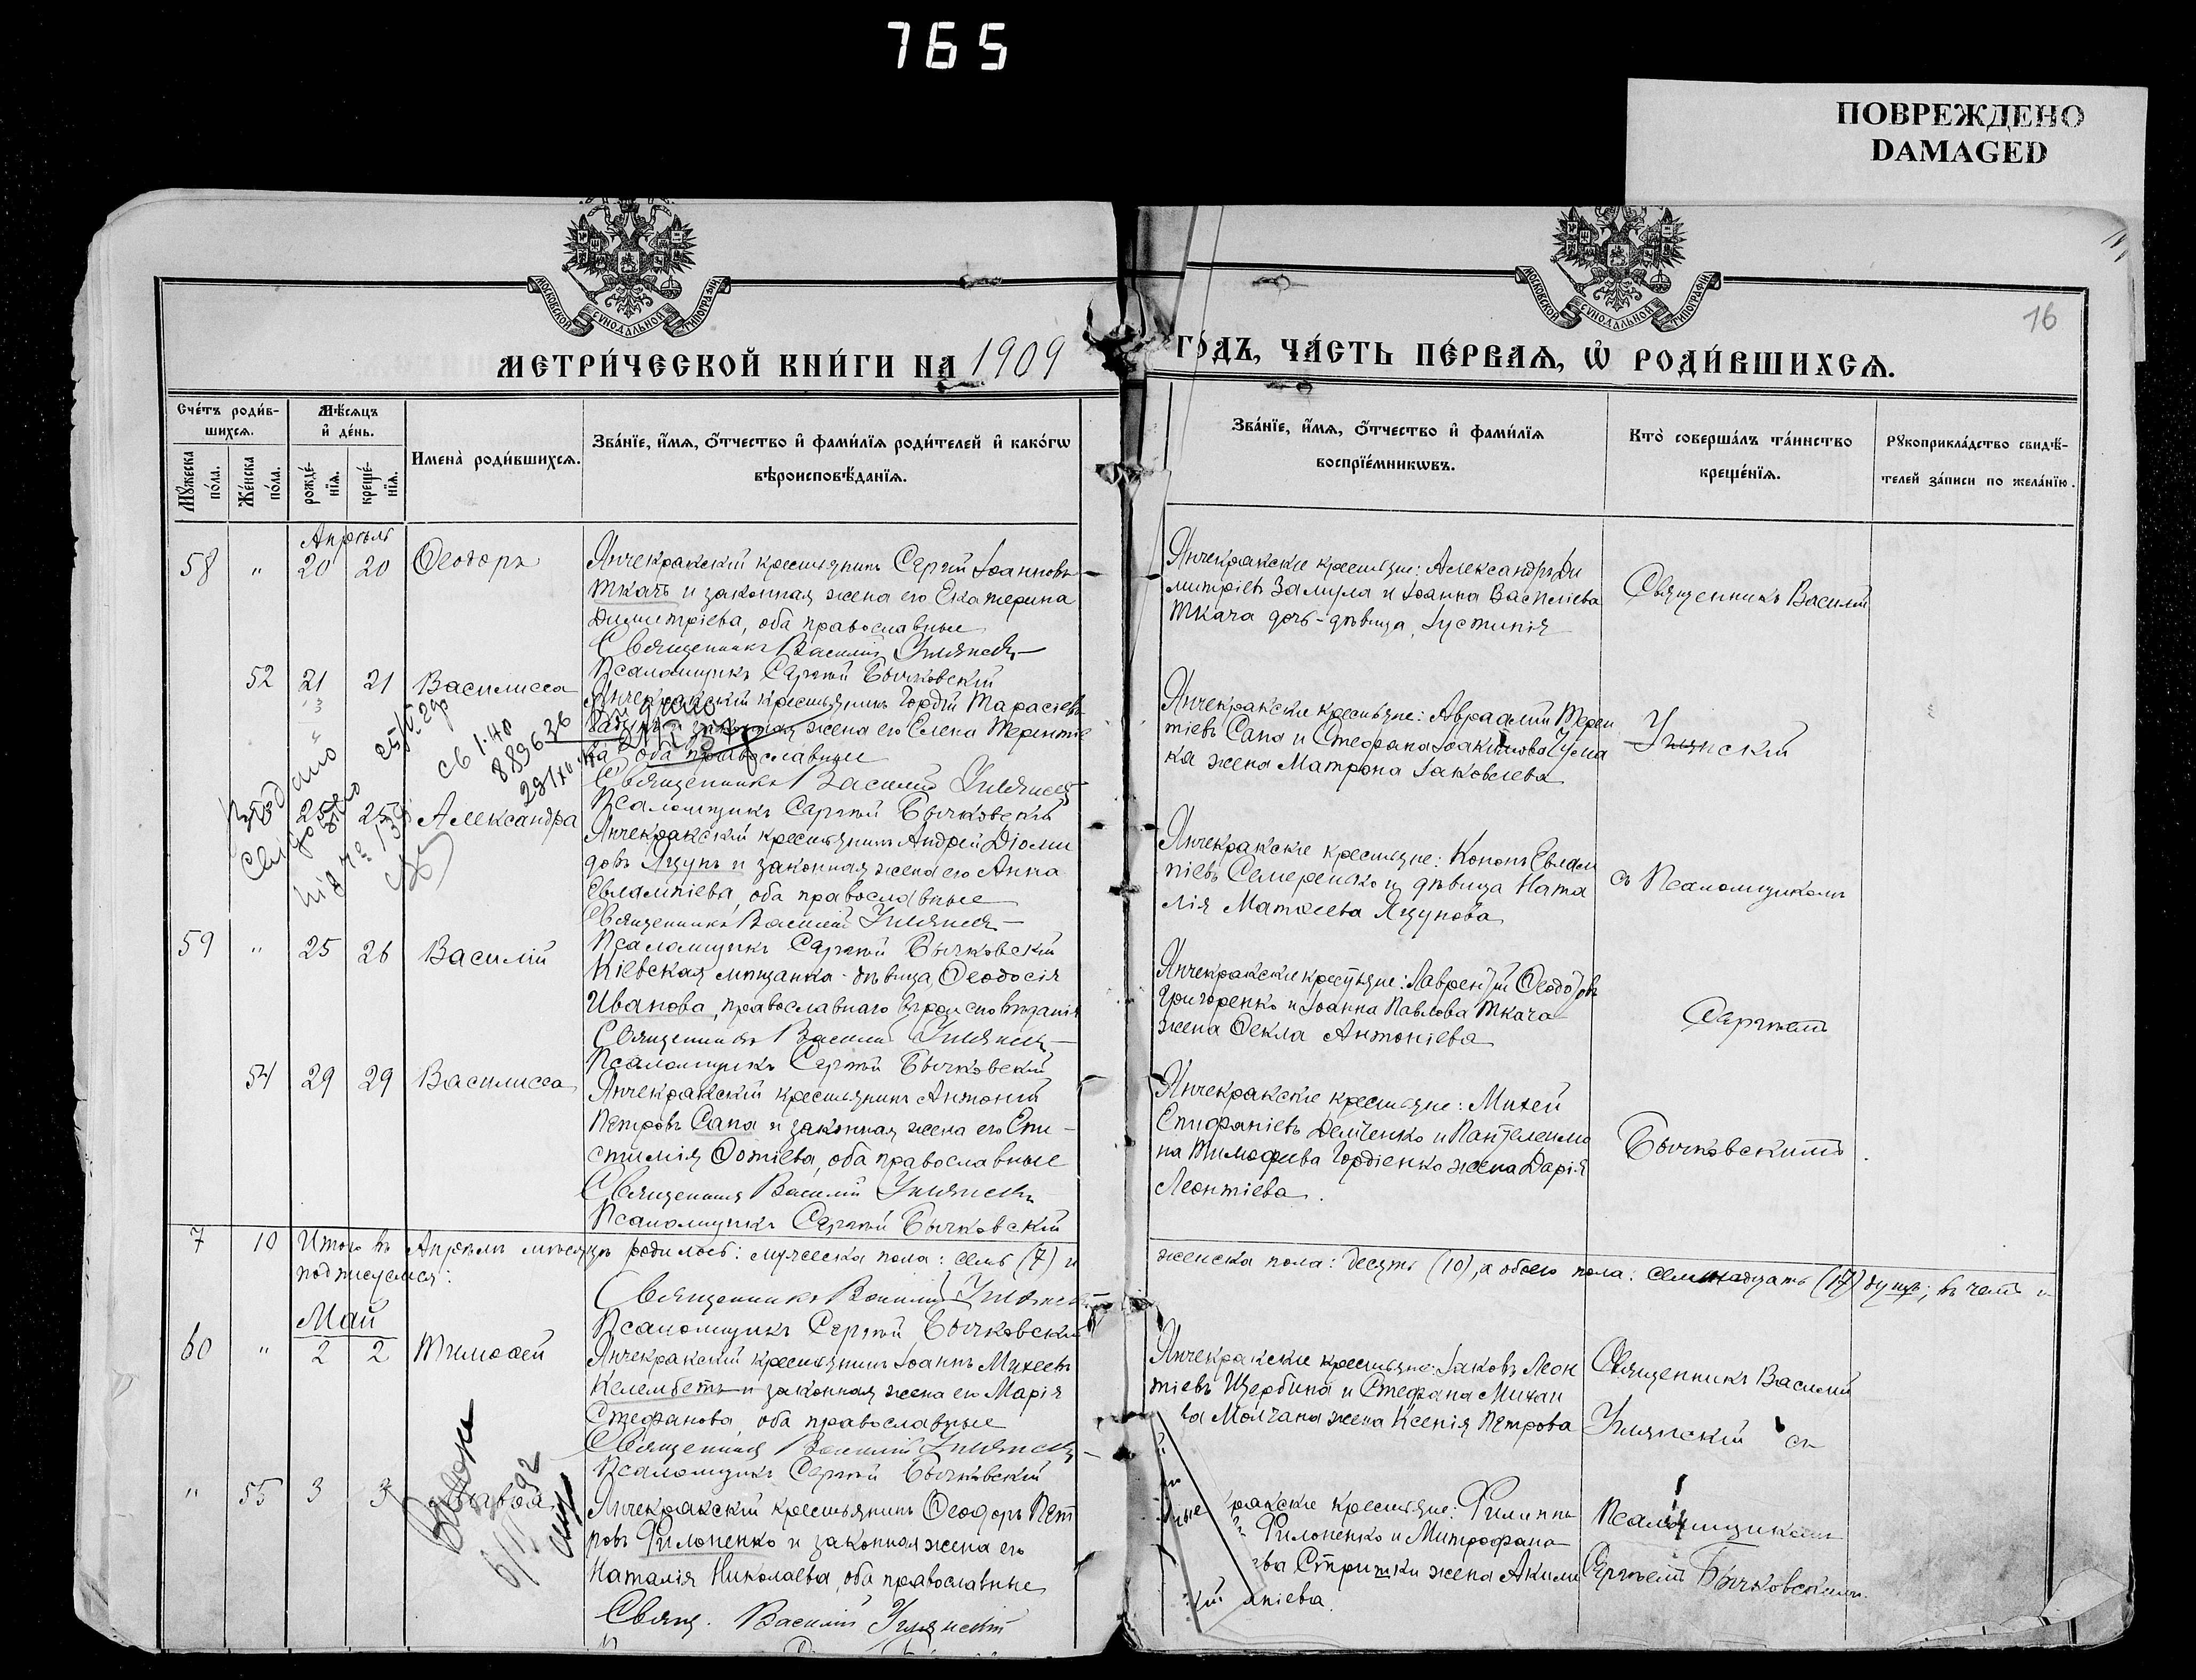 765
ПОВРЕЖДЕНО
DAMAGED
МОСКОВСКОЙ СУНОДАЛЬНОЙ ТИПОГРАФІИ
МОСКОВСКОЙ СУНОДАЛЬНОЙ ТИПОГРАФІИ
16
МЕТРИ́ЧЕСКОЙ КНИ́ГИ НА 1909
ГО́ДЪ, ЧА́СТЬ ПЕ́РВАѦ, Ѡ҆ РОДИ́ВШИХСѦ.
Сче́тъ роди́вшихсѧ.
Мꙋ́жеска по́ла.
Же́нска по́ла.
Мѣ́сѧцъ и҆ де́нь.
рожде́-нїѧ.
креще́-нїѧ.
Имена̀ роди́вшихсѧ.
Зва́нїе, и҆́мѧ, ѻ҆́тчество и҆ фами́лїѧ роди́телей и҆ како́гѡ
вѣроисповѣ́данїѧ.
Зва́нїе, и҆́мѧ, ѻ҆́тчество и҆ фами́лїѧ
воспрїе́мникѡвъ.
Кто̀ соверша́лъ та́инство
креще́нїѧ.
Рꙋкоприкла́дство свидѣ́-
телей за́писи по жела́нїю.
Апрѣль
58 " 20 20 Ѳеодоръ
Янчекракскій крестьянинъ Сергій Іоанновъ
Ткачъ и законная жена его Екатерина
Димитріева, оба православные
Священникъ Василій
Псаломщикъ Сергій Бычковскій
Янчекракскіе крестьяне: Александръ Ди
митріевъ Замула и Іоанна Василіева
Ткача дочь-дѣвица, Іустинія
Священникъ Василій
52 21 21 Василисса
Янчекракскій крестьянинъ Гордій Тарасіевъ
законная жена его Елена Терентіе
ва оба православные
Священникъ Василій
Псаломщикъ Сергій Бычковскій
Янчекракскіе крестьяне: Авраамій Терен
тіевъ Сапа и Стефана Іоакимова Чума
ка жена Матрона Іаковлева
св 1.40
889636
53 25 25 Александра
Янчекракскій крестьянинъ Андрей Діоми
довъ Яцунъ и законная жена его Анна
Евлампіева, оба православные
Священникъ Василій
Псаломщикъ Сергій Бычковскій
Янчекракскіе крестьяне: Кононъ Евлам
піевъ Семеренько и дѣвица Ната
лія Матѳеева Яцунова
съ Псаломщикомъ
59 " 25 26 Василій
Кіевская мѣщанка-дѣвица Ѳеодосія
Иванова, православнаго вѣроисповѣданія
Священникъ Василій
Псаломщикъ Сергій Бычковскій
Янчекракскіе крестьяне: Лаврентій Ѳеодоровъ
Григоренко и Іоанна Павлова Ткача
жена Ѳекла Антоніева
Сергіемъ
54 29 29 Василисса
Янчекракскій крестьянинъ Антоній
Петровъ Сапа и законная жена его Епи-
стимія Фотіева, оба православные
Священникъ Василій
Псаломщикъ Сергій Бычковскій
Янчекракскіе крестьяне: Михей
Епифаніевъ Демченко и Пантелеимо
на Тимоѳеева Гордіенко жена Дарія
Леонтіева.
Бычковскимъ.
7 10 Итого въ Апрѣлѣ мѣсяцѣ родилось: мужеска пола: семь (7) и
женска пола: десять (10), а обоего пола: семнадцать (17) душъ; въ чемъ и
подписуемся:
Священникъ Василій
Псаломщикъ Сергій Бычковскій
Май
60 " 2 2 Тимоѳей
Янчекракскій крестьянинъ Іоаннъ Михеевъ
Келембетъ и законная жена его Марія
Стефанова оба православные
Священникъ Василій
Псаломщикъ Сергій Бычковскій
Янчекракскіе крестьяне: Іаковъ Леон
тіевъ Щербина и Стефана Михаи
ва Молчана жена Ксенія Петрова
Священникъ Василій
съ
" 55 3 3
Янчекракскій крестьянинъ Ѳеодоръ Пет
ровъ Филоненко и законная жена его
Наталія Николаева, оба православные
Свящ. Василій
ракскіе крестьяне: Филиппъ
Филоненко и Митрофана
ева Стрижки жена Акили
нніева.
Псаломщикомъ
Сергіемъ Бычковскимъ.